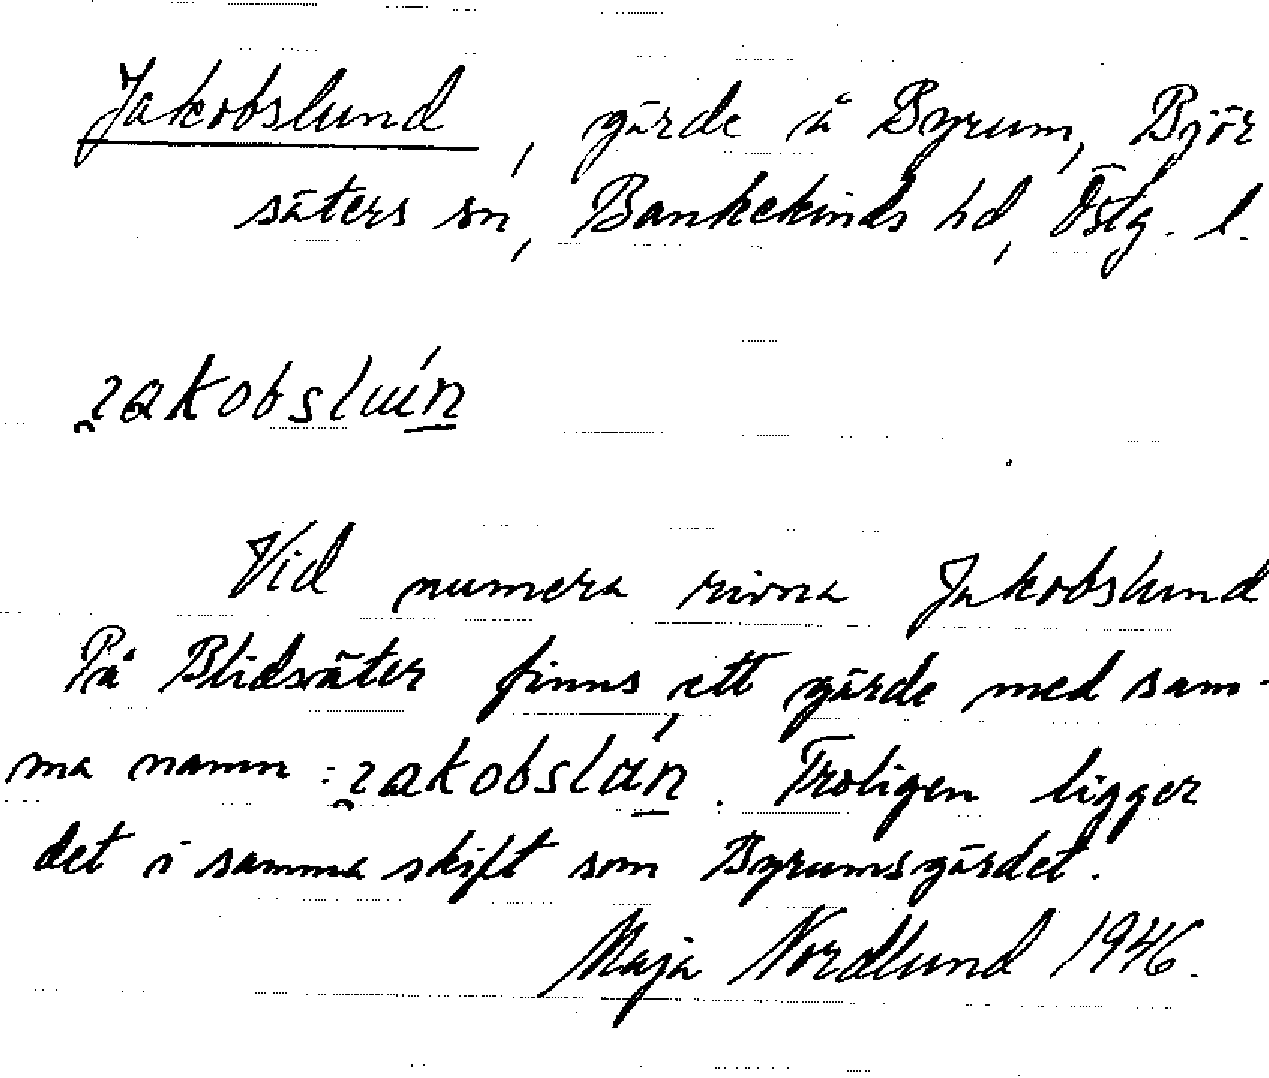 Jakobslund, gärde å Byrum, Björ
säters sn, Bankekinds hd, Östg. l.
jakobslun
Vid numera rivna Jakobslund
På Blidsäter finns ett gärde med sam-
ma namn: jakobslun. Troligen ligger
det i samma skift som Byrumsgärdet.
Maja Nordlund 1946.